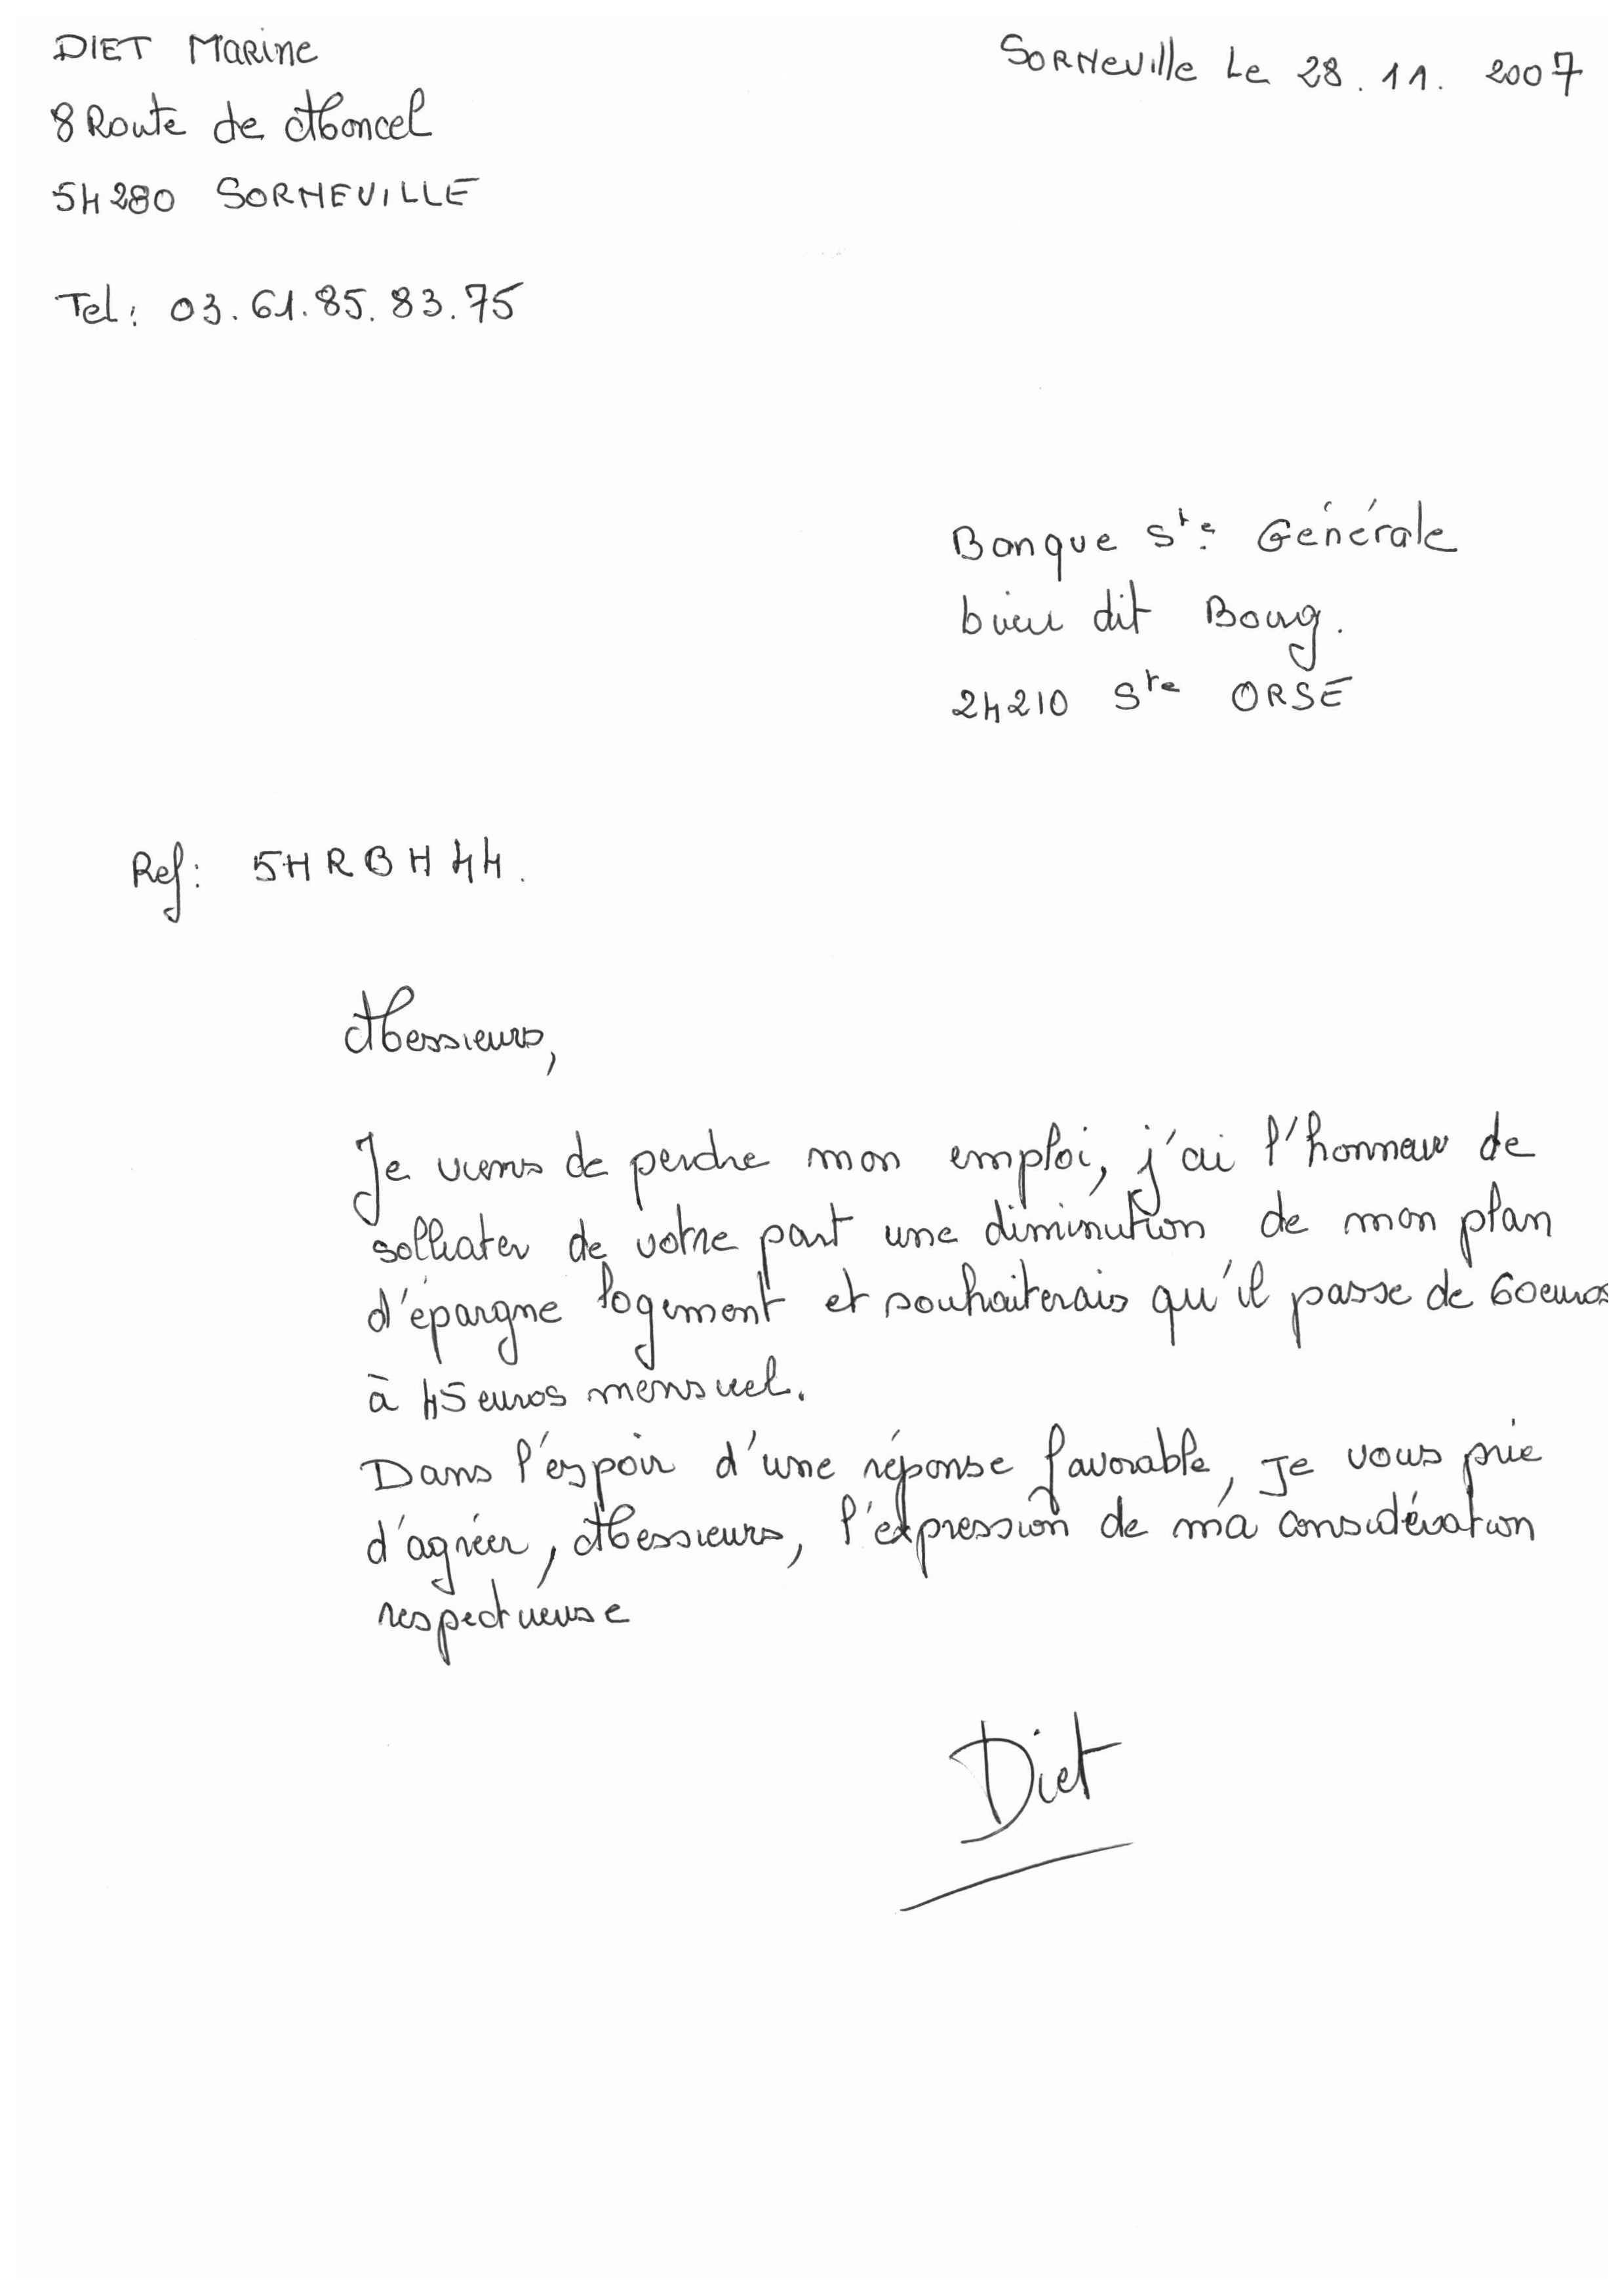 DIET Marine
Sorneville Le 28.11.2007
8 Route de Moncel
54280 SORNEVILLE
Tel: 03.61.85.83.75
Banque Sté Générale
Lieu dit Bourg.
24210 Ste ORSE
Ref: 5HRBH44.
Messieurs,
Je viens de perdre mon emploi, j'ai l'honneur de
solliciter de votre part une diminution de mon plan
d'épargne logement et souhaiterais qu'il passe de 60euros
à 45 euros mensuel.
Dans l'espoir d'une réponse favorable, Je vous prie
d'agréer, Messieurs, l'expression de ma considération
respectueuse
Diet